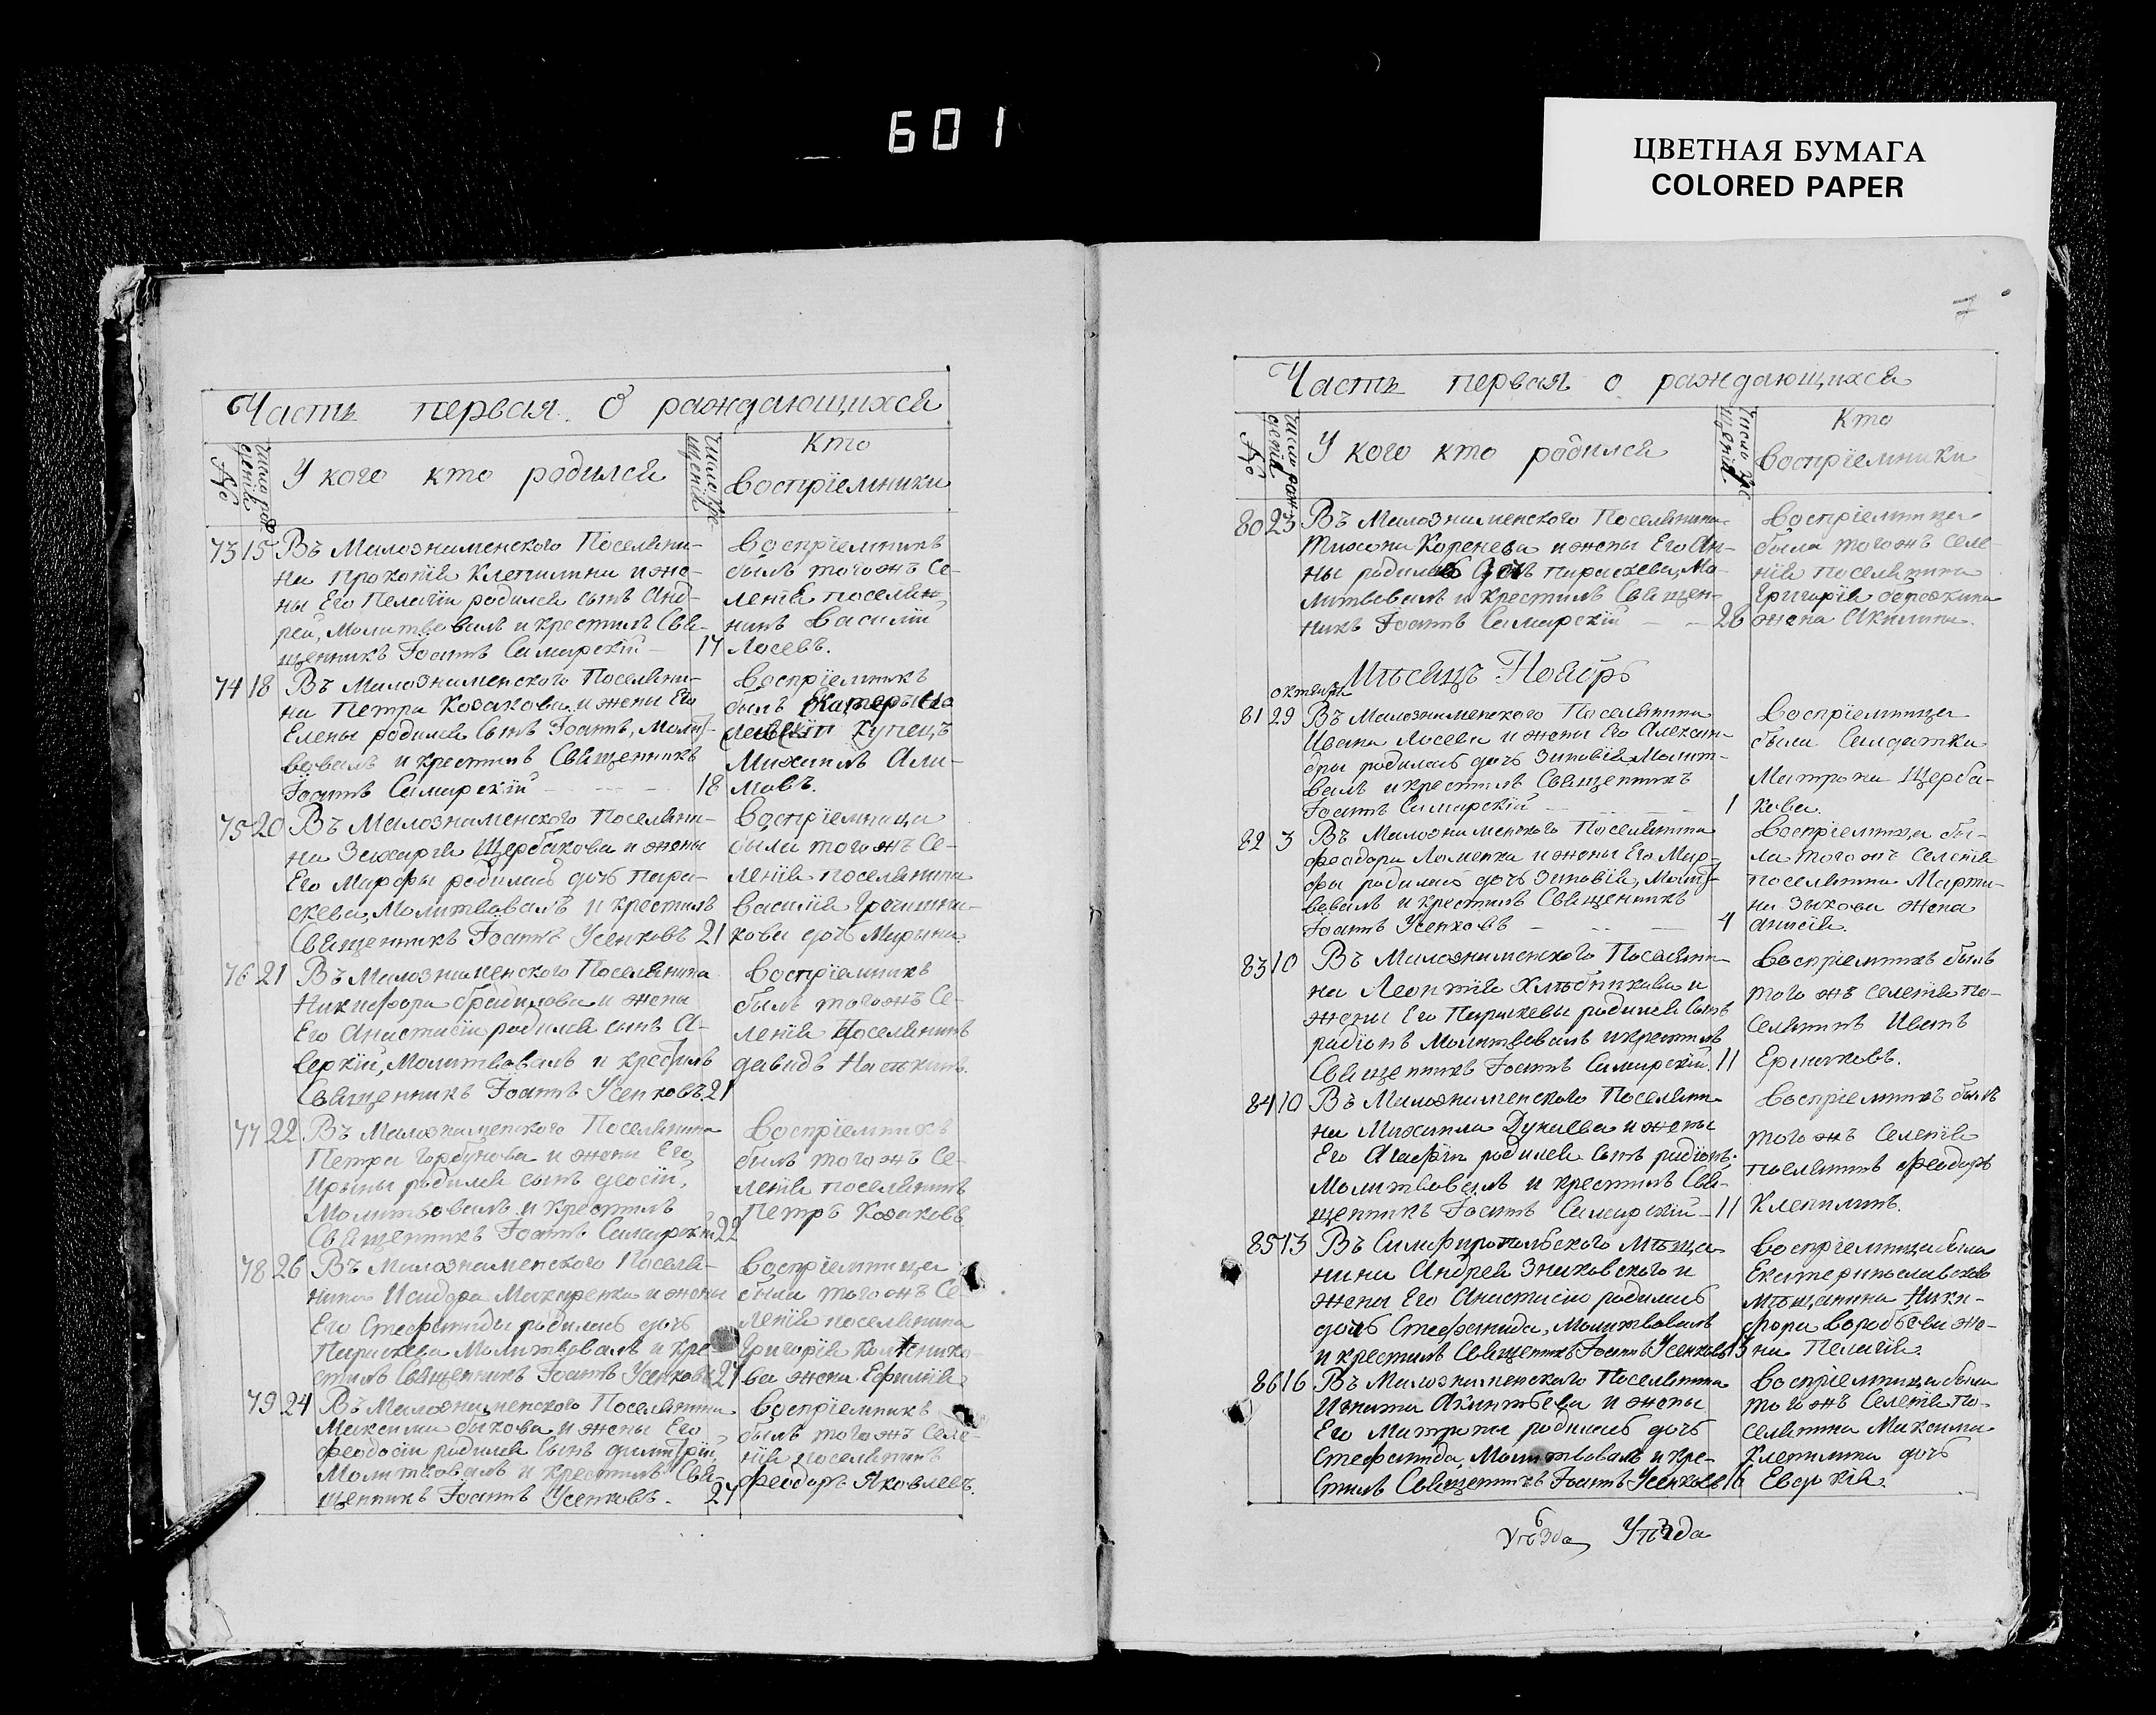 601
ЦВЕТНАЯ БУМАГА
COLORED PAPER
Часть первая О раждающихся
№
У кого кто родился
Кто
воспріемники
73 15 Въ Малознаменского Поселяни-
на Прокопія Клепилина и же-
ны Его Пелагіи родился сынъ Анд-
рей, Молитвовалъ и крестилъ Свя-
щенникъ Іоаннъ Самарскій 17
воспріемникъ
былъ тогожъ Се-
ленія поселян
никъ Василій
Лосевъ.
74 18 Въ Малознаменского Поселяни-
на Петра Козакова и жены Его
Елены родился Сынъ Іоаннъ, Молит-
вовалъ и крестилъ Священникъ
Іоаннъ Самарскій 18
воспріемникъ
былъ
Купецъ
Михаилъ Али-
мовъ.
75 20 Въ Малознаменского Поселяни-
на Захарія Щербакова и жены
Его Марфы родилась дочь Пара-
скева, Молитвовалъ и крестилъ
Священникъ Іоаннъ Усенковъ 21
воспріемница
была тогожъ Се-
ленія поселянина
василія Гречишни-
кова дочь Марина
76 21 Въ Малознаменского Поселянина
Никифора и жены
Его Анастасіи родился сынъ А-
веркій, Молитвовалъ и крестилъ
Священникъ Іоаннъ Усенковъ. 21
воспріемникъ
былъ тогожъ Се-
ленія Поселянинъ
давидъ
77 22 Въ Малознаменского Поселянина
Петра Горбунова и жены Его
Ирыны родился сынъ
Молитвовалъ и Крестилъ
Священникъ Іоаннъ Самарскій 22
Воспріемникъ
былъ тогожъ Се-
ленія поселянинъ
Петръ Козаковъ
78 26 Въ Малознаменского Поселя-
нина Исидора Макаренка и жены
Его Стефаниды родилась дочь
Параскева Молитвовалъ и кре
стилъ Священникъ Іоаннъ Усенковъ 27
воспріемница
была тогожъ Се-
ленія поселянина
Григорія
ва жена Ефимія
79 24 Въ Малознаменского Поселянина
Максима быкова и жены Его
Феодосіи родился Сынъ димитрій,
Молитвовалъ и крестилъ Свя-
щенникъ Іоаннъ Усенковъ. 27
воспріемникъ
былъ тогожъ Селе-
нія поселянинъ
Феодоръ Яковлевъ.
Часть первая о раждающихся
№
У кого кто родился
Кто
воспріемники
80 23 Въ Малознаменского Поселянина
Тихона Коренева и жены Его Ан-
ны родилась дочь Параскева, Мо-
литвовалъ и крестилъ Священ-
никъ Іоаннъ Самарскій 26
воспріемница
была тогожъ Селе
нія поселянина
Григорія
жена Акилина.
Мѣсяцъ Ноябрь
октября
81 29 Въ Малознаменского Поселянина
Ивана Лосева и жены Его Алексан-
дры родилась дочь Зиновія Молит-
валъ и крестилъ Священникъ
Іоаннъ Самарскій 1
воспріемница
была Салдатка
Матрона Щерба-
кова.
82 3 Въ Малознаменского Поселянина
Феодора Ломенка и жены Его Мар-
фы родилась дочь Зиновія, Молит-
вовалъ и крестилъ Священникъ
Іоаннъ Усенковъ 4
воспріемница бы-
ла тогожъ Селенія
поселянина Марти-
на Зыкова жена
анисія.
83 10 Въ Малознаменского Поселяни-
на Леонтія Хлѣбникова и
жены Его Параскевы родился Сынъ
радіонъ Молитвовалъ и крестилъ
Священникъ Іоаннъ Самарскій. 11
воспріемникъ былъ
того жъ селенія По-
селянинъ Иванъ
84 10 Въ Малознаменского Поселяни
на Михаила Дунаева и жены
Его Агафіи родился Сынъ радіонъ.
Молитвовалъ и крестилъ Свя-
щенникъ Іоаннъ Самарскій 11
воспріемникъ былъ
того жъ Селенія
поселянинъ Феодоръ
Клепилинъ.
85 13 Въ Симферопольского Мѣща
нина Андрея Зниковского и
жены Его Анастасіи родилась
дочь Стефанида, Молитвовалъ
и крестилъ Священникъ Іоаннъ Усенковъ 13
воспріемница была
Екатеринославского
мѣщанина Ники-
фора воробьева же-
на Пелагія.
86 16 Въ Малознаменского Поселянина
Игната Акинтьева и жены
Его Матроны родилась дочь
Стефанида, Молитвовалъ и кре-
стилъ Священникъ Іоаннъ Усенковъ 16
воспріемница была
тогожъ Селенія По-
селянина Максима
Клепилина дочь
Евдокія.
Уѣзда Уѣзда